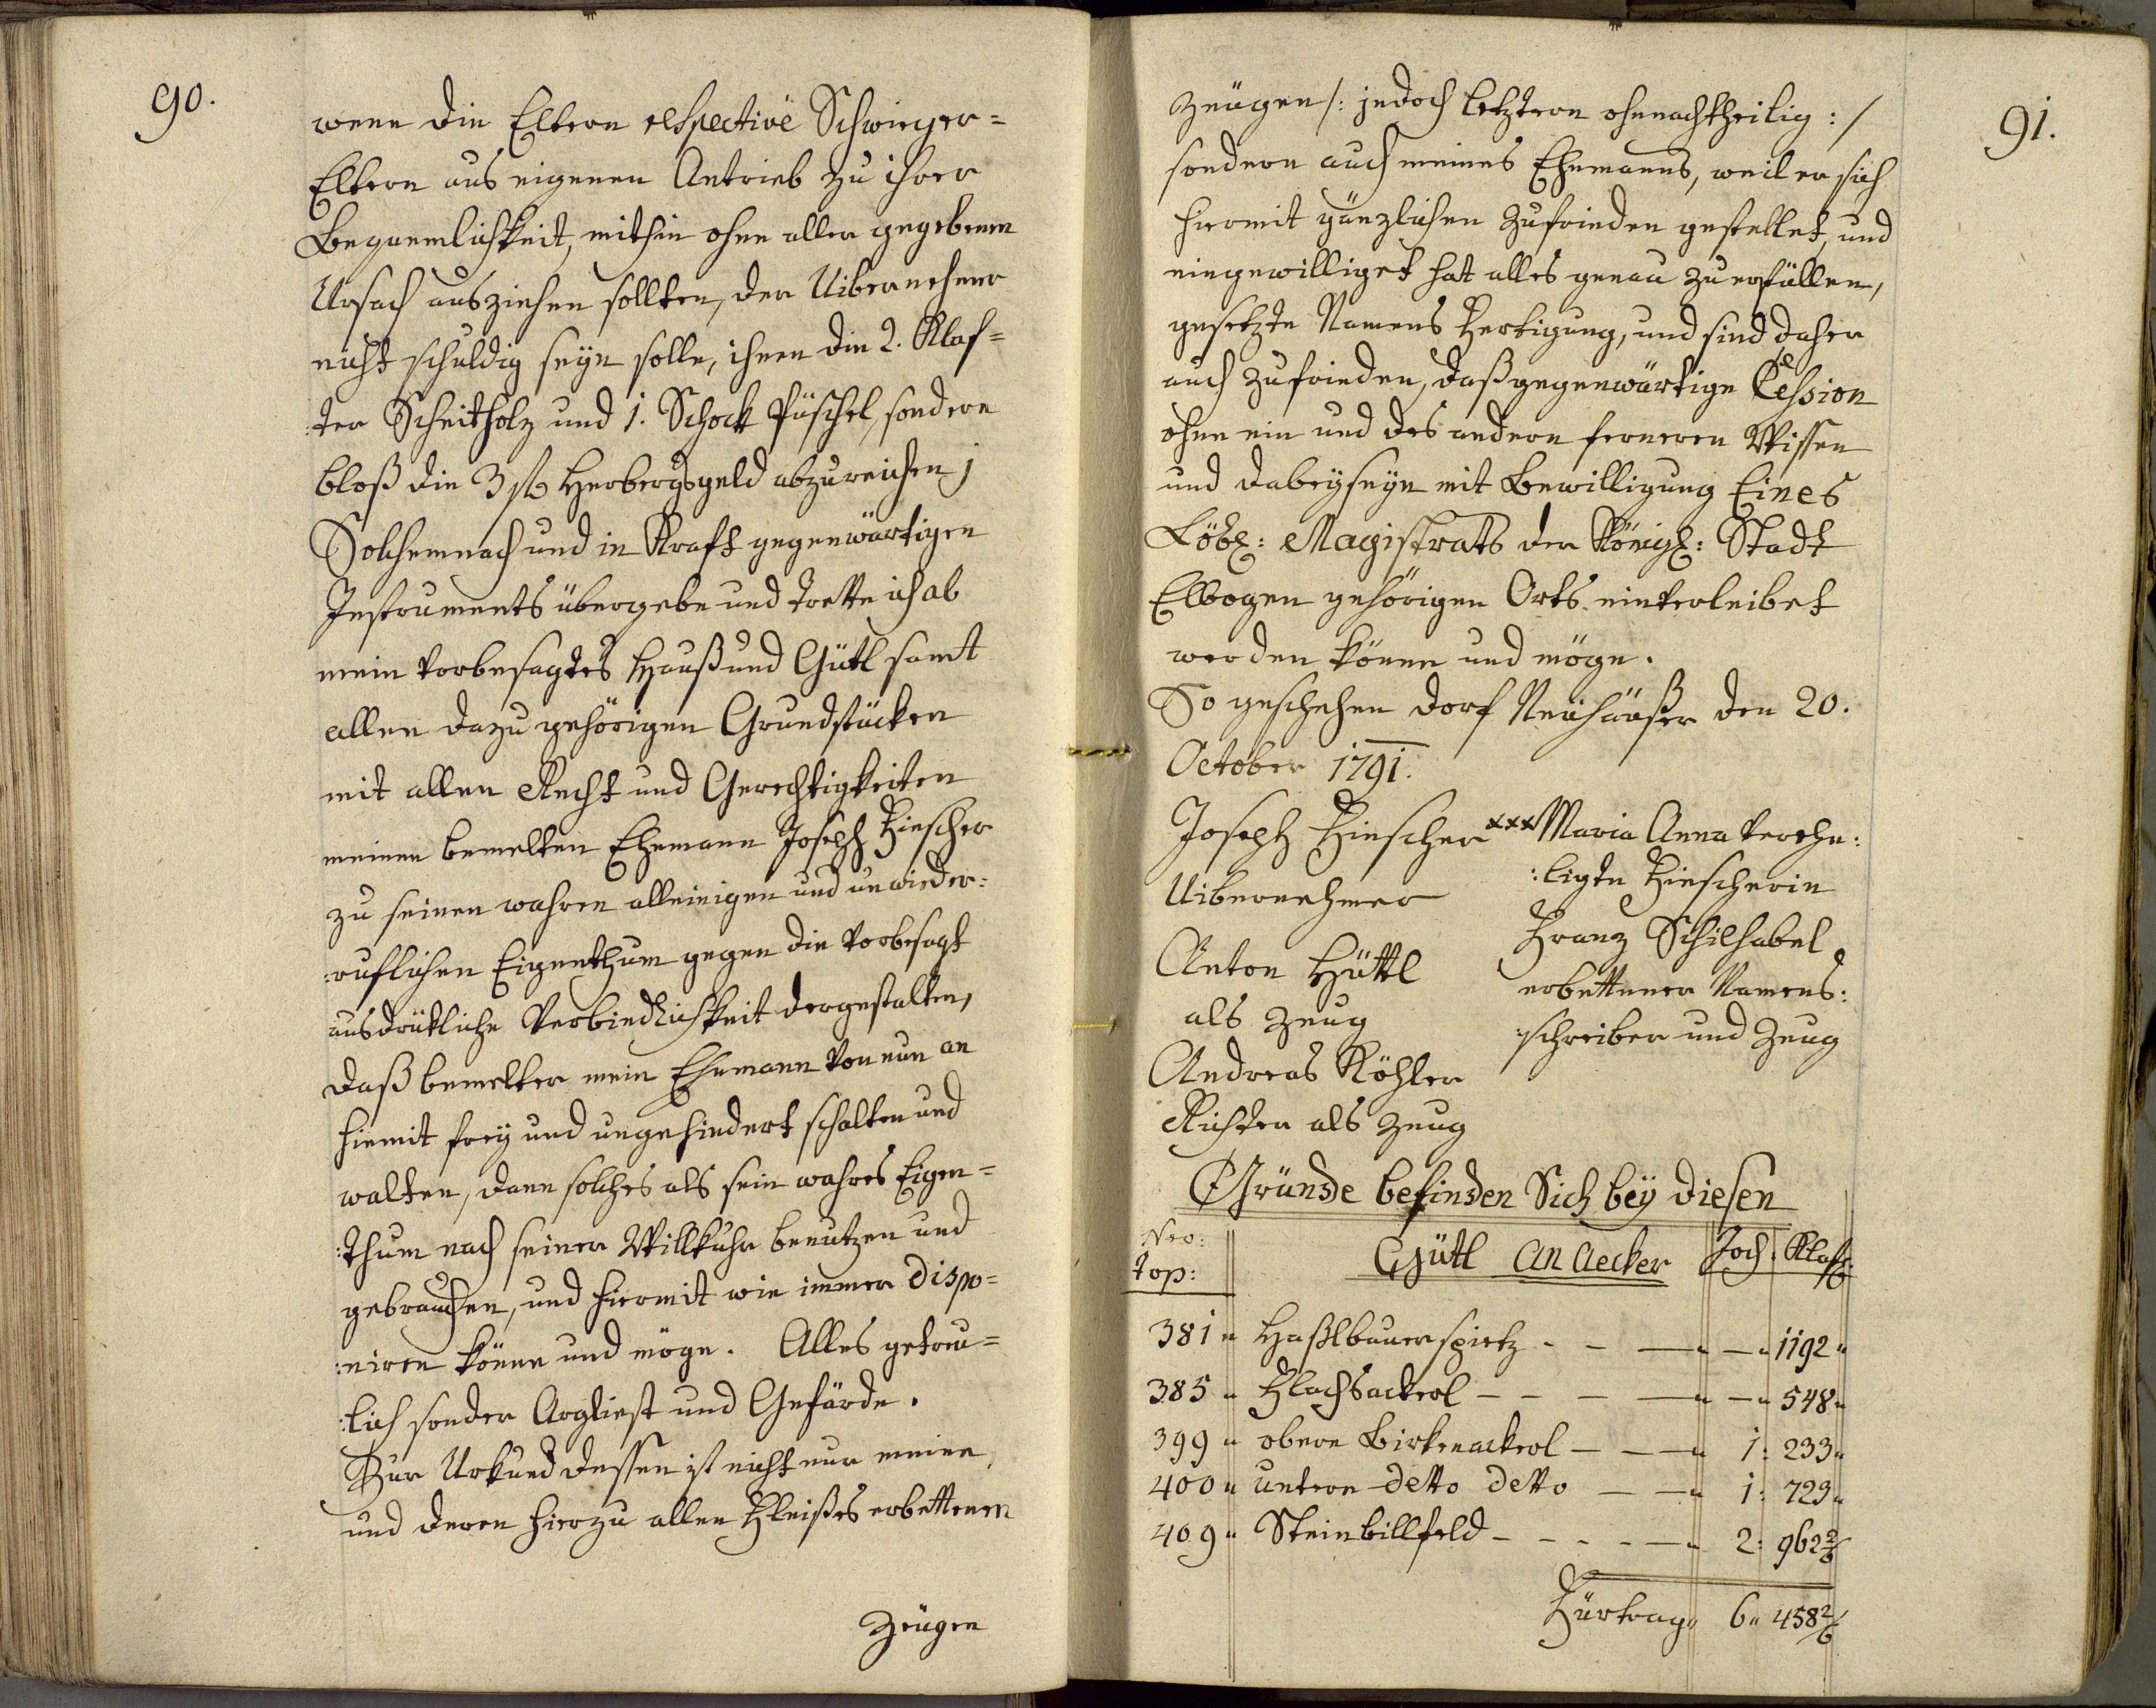 90.
wenn die Eltern respective Schwieger=
Eltern aus eigenen Antrieb zu ihrer
Bequemlichkeit, mithin ohne aller gegebenen
Ursach ausziehen sollten, der Uibernehmer
nicht schuldig seyn solle, ihnen die 2. Klaf=
:ter Scheitholz und 1. Schock Püschel, sondern
bloß die 3 fl Herbergsgeld abzureichen;
Solchemnach und in Kraft gegenwärtigen
Instruments übergebe und trette ich ab
mein vorbesagtes Hauß und Gütl samt
allen dazu gehörigen Grundstücken
mit allen Recht und Gerechtigkeiten
meinen bemelten Ehemann Joseph Hirscher
zu seinen wahren alleinigen und unwieder:
:ruflichen Eigenthum gegen die vorbesagt
ausdrükliche Verbindlichkeit dergestalten,
daß bemelter mein Ehemann von nun an
hiemit frey und ungehindert schalten und
walten, dann solches als sein wahres Eigen=
:thum nach seiner Willkuhr benutzen und
gebrauchen, und hiermit wie immer dispo=
:niren könne und möge. Alles getreu=
:lich sonder Arglist und Gefärde.
Zur Urkund dessen ist nicht nur meine,
und deren hierzu allen Fleißes erbettenen
Zeugen
91.
Zeügen /: jedoch letztern ohnnachtheilig :/
sondern auch meines Ehemanns, weil er sich
hiermit gänzlichen zufrieden gestellet, und
eingewilliget hat alles genau zu erfüllen,
gesetzte Namens Fertigung, und sind daher
auch zufrieden, daß gegenwärtige Cession
ohne ein und des andern ferneren Wissen
und Dabeyseyn mit Bewilligung Eines
Löbl: Magistrats der Königl: Stadt
Elbogen gehörigen Orts einverleibet
werden könne und möge.
So geschehen Dorf Neuhäußer den 20.
October 1791.
Joseph Hirscher xxx Maria Anna verehe:
Uibernehmer :ligte Hirscherin
Anton Hüttl Franz Schilhabel
als Zeug erbettener Namens:
Andreas Köhler :schreiber und Zeug
Richter als Zeug
Gründe befinden Sich bey diesen
Nro: top: Gütl An Aecker Joch. Klaft.
381 " Haßlbauerspietz - - — " — " 1192 "
385 " Flachsackerl - - - — " — " 548 "
399 " obern Birkenackerl - - — " 1: 233 "
400 " untern detto detto - — " 1: 723 "
409 " Steinbillfeld - - - - — " 2: 962 2/6
Fürtrag " 6 " 458 2/6